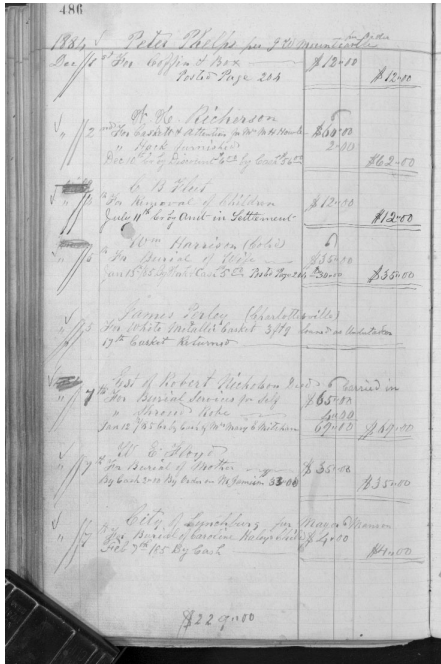 486
1884 Peter Phelps per
Dec 1st For Coffin & Box $12.00
Posted Page 204 $12.00
Richerson
" 2nd For Casket & Attention for Mr $60.00
" Hack furnished 2.00
Dec 10th by Discount by Cash $62.00
C B Fleet
" 3 For Removal of Children $12.00
July 11th Cr by Amt in Settlement $12.00
Wm Harrison
" 5th For Burial of Wife $35.00
Jan 15 85 by Cash 5.00 Posted Page 204 30.00 $35.00
James (Charlottesville)
" 5 For White Metallic Casket 3/9 loaned as Undertaker
17th Casket Returned
Est of Robert Nicholson Decd carried in
" 7th For Burial Services for Self $65.00
" Shroud Robe 4.00
Jan 12th 85 by Cash of Mrs Mary 69.00 $69.00
W E Floyd
" 7th For Burial of Mother $35.00
By Cash 2.00 By Order on 33.00 $35.00
City of Lynchburg per Mayor Manson
" 7 For Burial of Child $4.00
Feb 7th 1885 By Cash $4.00
$229.00